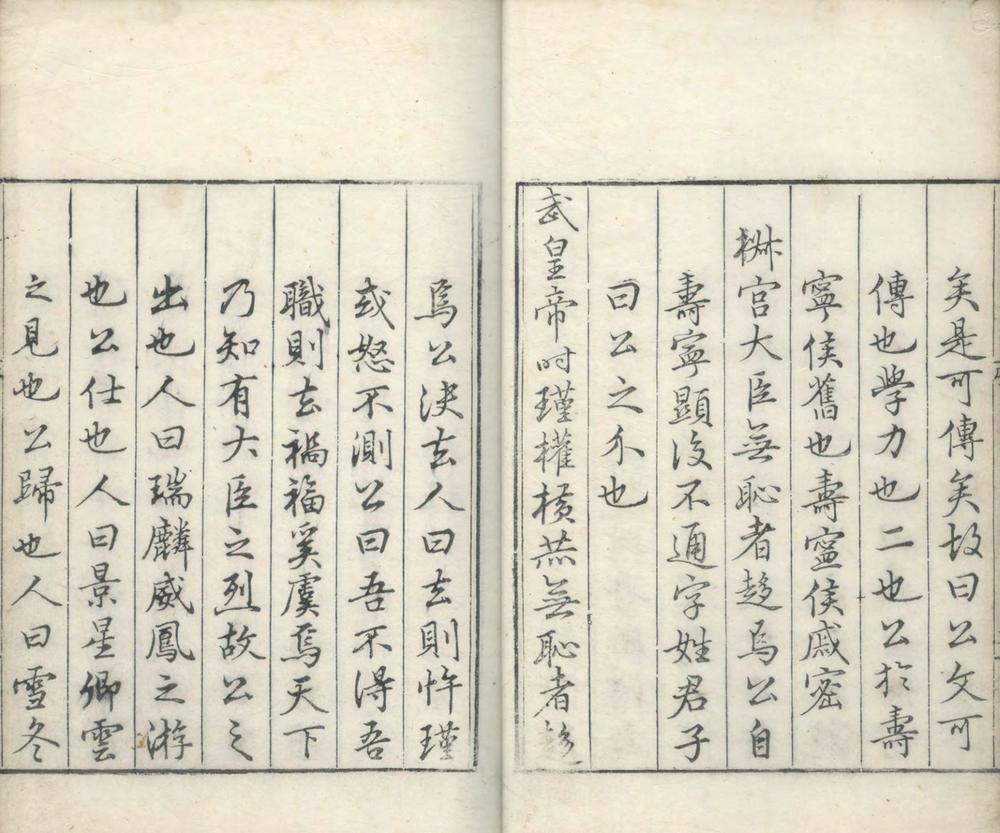 矣是可傳矣故曰公文可
傳也學力也二也公於壽
寧侯舊也壽寧侯戚密
椒宮大臣無恥者趍焉公自
壽寧顯後不通字姓君子
曰公之介也
武皇帝时瑾權横燕無恥者趍
焉公決去人曰去則忤瑾
或怒不測公曰吾不得吾
職則去禍福奚虞焉天下
乃知有大臣之烈故公之
出也人曰瑞麟威鳳之游
也公仕也人曰景星卿雲
之見也公歸也人曰雪冬